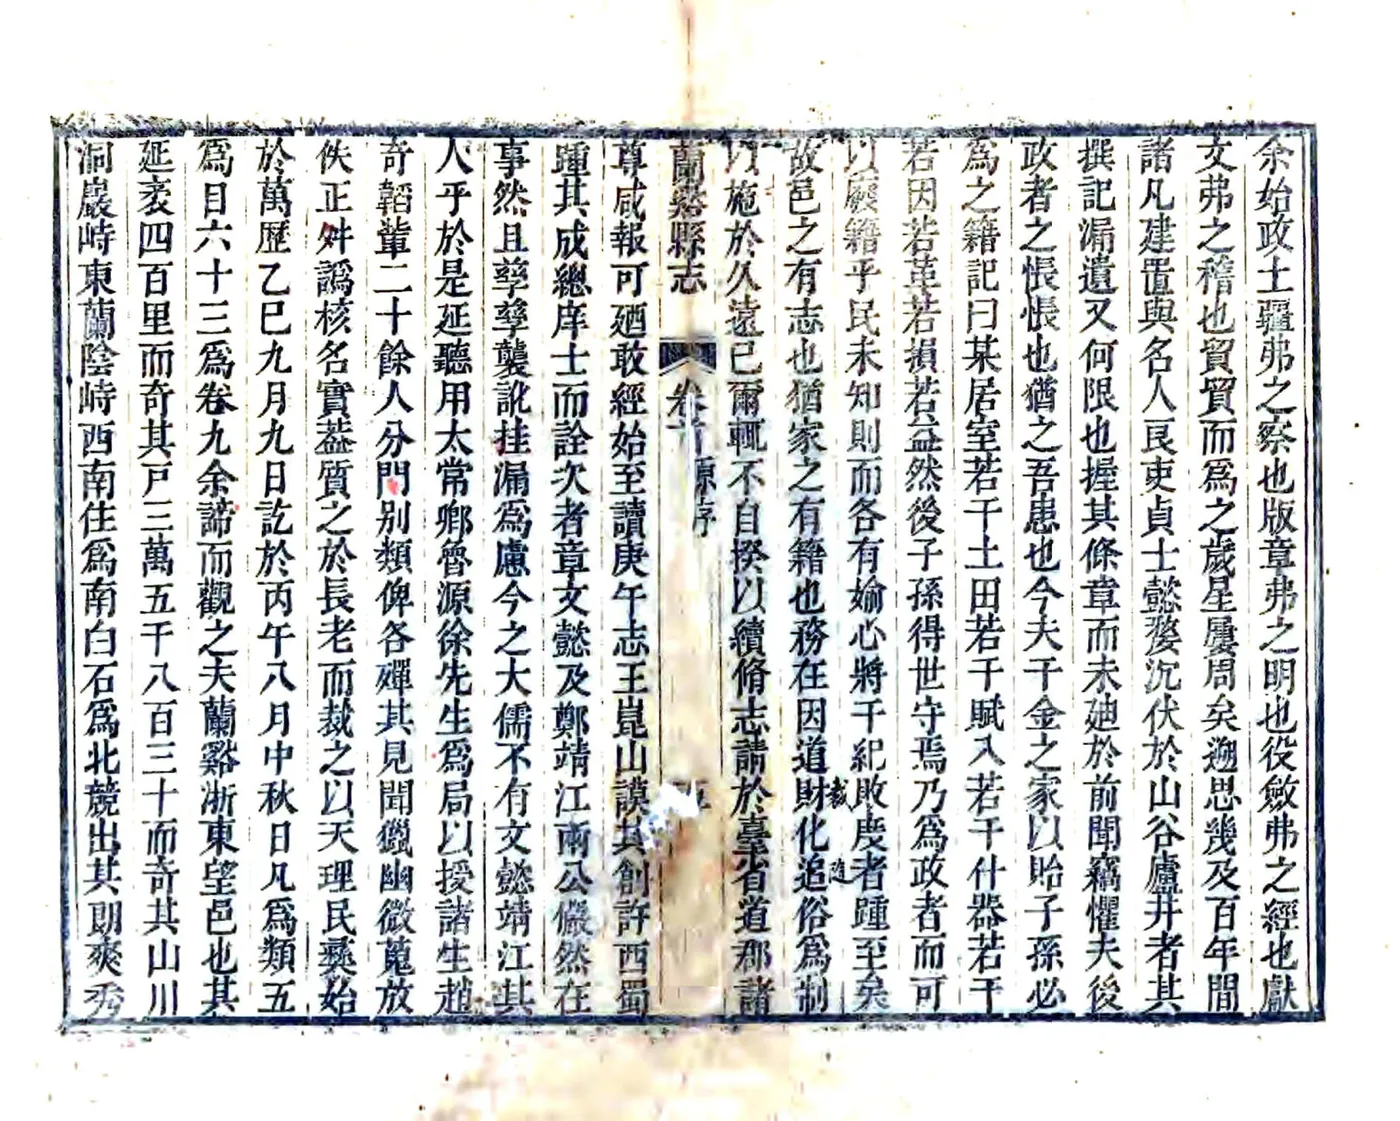 余始政土疆弗之察也版章弗之明也役斂弗之經也獻
文弗之稽也貿貿而爲之歲星屢周矣遡思幾及百年間
諸凡建置與名人良吏貞士懿婺沉伏於山谷廬井者其
撰記漏遺又何限也握其條章而未廸於前聞竊懼夫後
政者之悵悵也猶之吾患也今夫千金之家以貽子孫必
爲之籍記曰某居室若干土田若干賦入若干什器若干
若因若革若損若益然後子孫得世守焉乃爲政者而可
以嚴籍乎民未知則而各有媮心將干紀敗度者踵至矣
故邑之有志也猶家之有籍也務在因道財化追俗爲制
裁 隨
以施於久遠已爾輒不自揆以續脩志請於臺省道郡諸
蘭谿縣志 卷首 原序
尊咸報可廼敢經始至讀庚午志王崑山謨其創許西蜀
踵其成總庠士而詮次者章文懿及鄭靖江兩公儼然在
事然且孳孳襲訛挂漏爲慮今之大儒不有文懿靖江其
人乎於是延聽用太常卿魯源徐先生爲局以授諸生趙
奇韜輩二十餘人分門別類俾各殫其見聞獵幽微蒐放
佚正舛譌核名實葢質之於長老而裁之以天理民彝始
於萬歷乙巳九月九日訖於丙午八月中秋日凡爲類五
爲目六十三爲卷九余諦而觀之夫蘭谿浙東望邑也其
延袤四百里而奇其戸三萬五千八百三十而奇其山川
洞巖峙東蘭陰峙西南住爲南白石爲北競出其朗爽秀